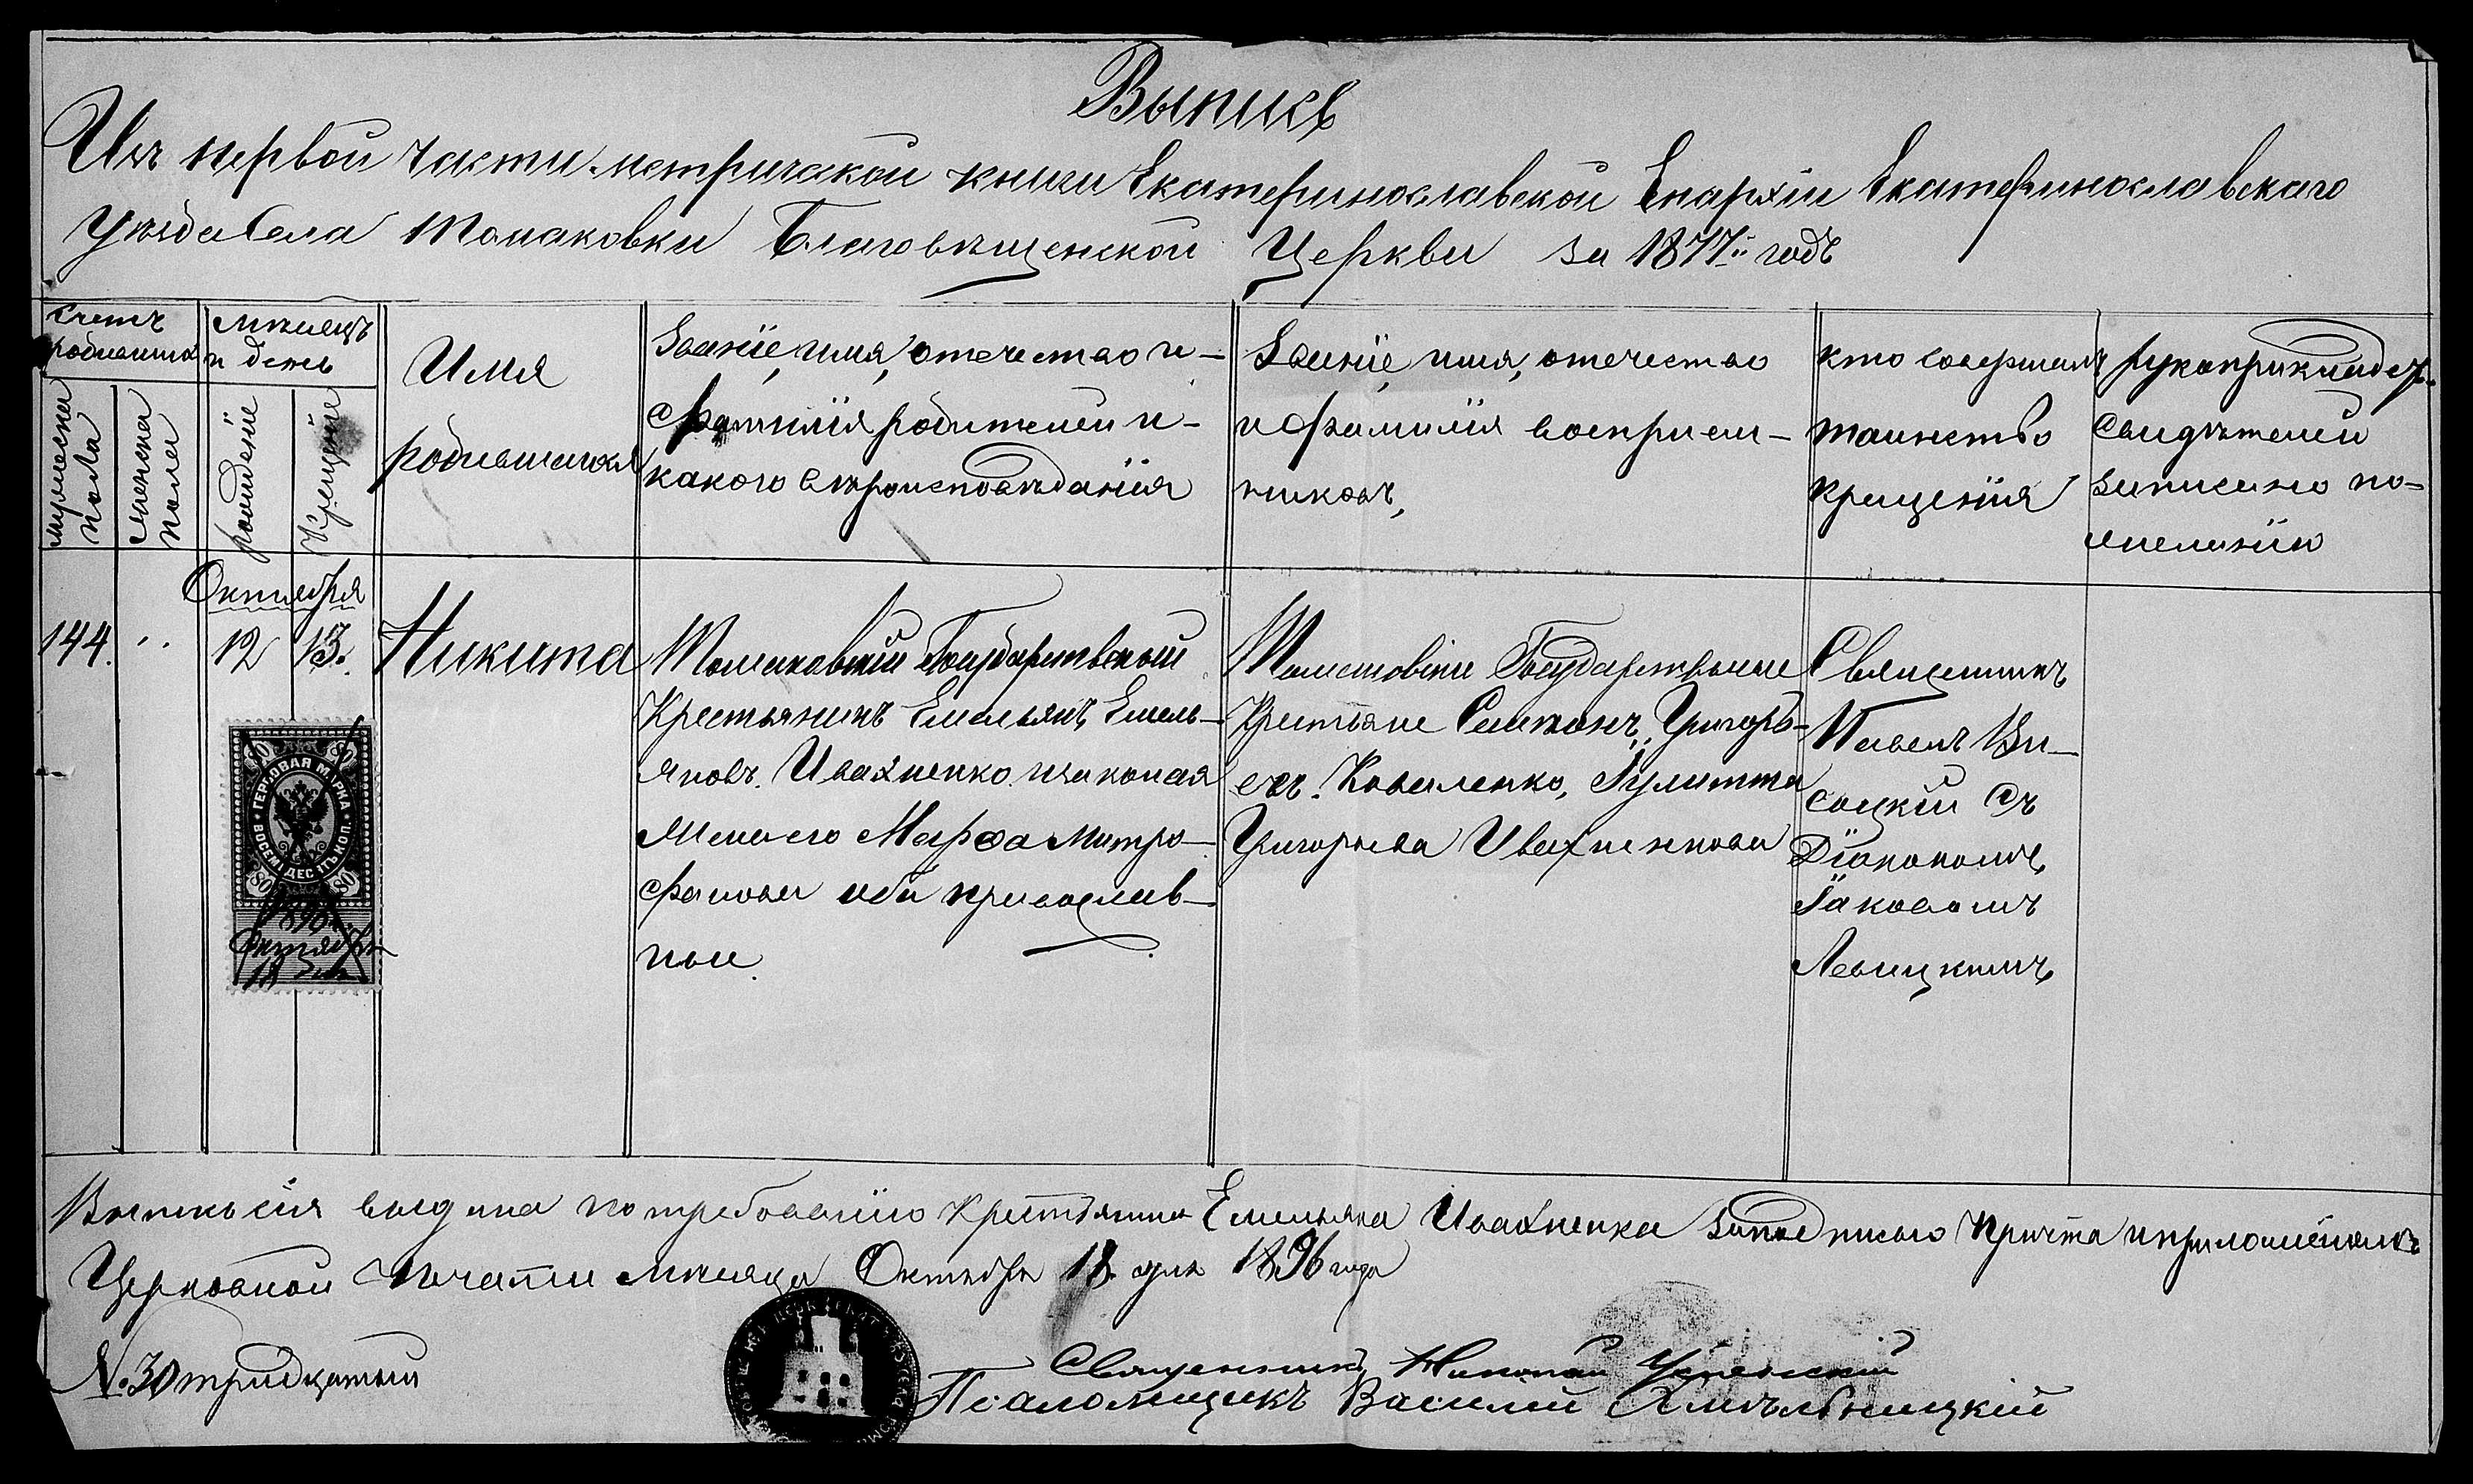 Выпись
Изъ первой части метрической книги Екатеринославской Епархіи Екатеринославскаго
Уѣзда Села Томаковки Благовѣщенской Церкви за 1877й годъ
Счетъ
родившихся
мужеска
пола
женска
пола
Мѣсяцъ
и день
рожденіе
Крещеніе
Имя
родившагося
Званіе, имя, отечество и
фамилія родителей и
какого вѣроисповѣданія
Званіе, имя, отечество
и фамилія воспріем-
никовъ,
кто совершалъ
таинство
крещенія
рукоприклад.
свидѣтелей
записано по-
желанію
Октября
144.
12
13.
Никита
Томаковскій Государственный
Крестьянинъ Емельянъ Емель-
яновъ Ивахненко и законая
Жена его Марфа Митро-
фанова оба православ-
ные.
Томаковскіе Государственые
Крестьяне Симеонъ Григорь-
евъ Коваленко, Іулитта
Григорьева Ивахненкова
Священникъ
Павелъ Ви-
соцкій съ
Діакономъ
Іаковомъ
Левицкимъ
80 80
ГЕРБОВАЯ МАРКА
ВОСЕМЬДЕСЯТЪ КОП.
80 80
1896
Октября
18 дня
Выпись сія выдана по требованію Крестьянина Емельяна Ивахненка за подписью Причта и приложеніемъ
Церковной Печати мѣсяца Октября 18 дня 1896 года
№ 30 тридцатый
Священникъ Николай Успенскій
Псаломщикъ Василий Хмѣльницкій